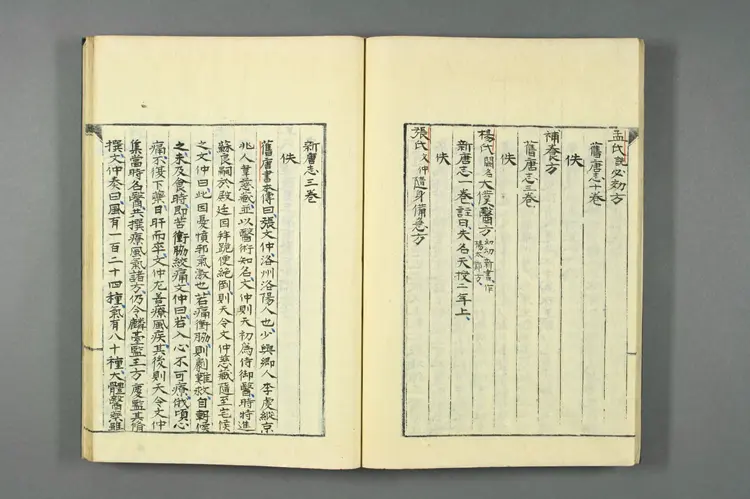 孟氏詵必効方
舊唐志十卷
佚
補養方
舊唐志三卷
佚
楊氏闕名大僕醫方幼幼新書作楊太鄴方、
新唐志一卷、註曰、失名、天授二年上、
佚
張氏文仲隨身備急方
新唐志三卷
佚
舊唐書本傳曰、張文仲洛州洛陽人也、少與鄉人李虔縱京
兆人韋慈藏並以醫術知名、文仲則天初為侍御醫、時特進
蘇良嗣於殿廷因拜跪便絕倒、則天令文仲慈藏隨至宅候
之、文仲曰、此因憂憤邪氣激也、若痛衝脇則劇難救、自朝候
之、未及食時即苦衝脇絞痛、文仲曰、若入心不可療、俄頃心
痛不復下藥、日旰而卒、文仲尤善療風疾、其後則天令文仲
集當時名醫共撰療風氣諸方、仍令麟臺監王方慶監其脩
撰、文仲奏曰、風有一百二十四種、氣有八十種、大體醫藥雖